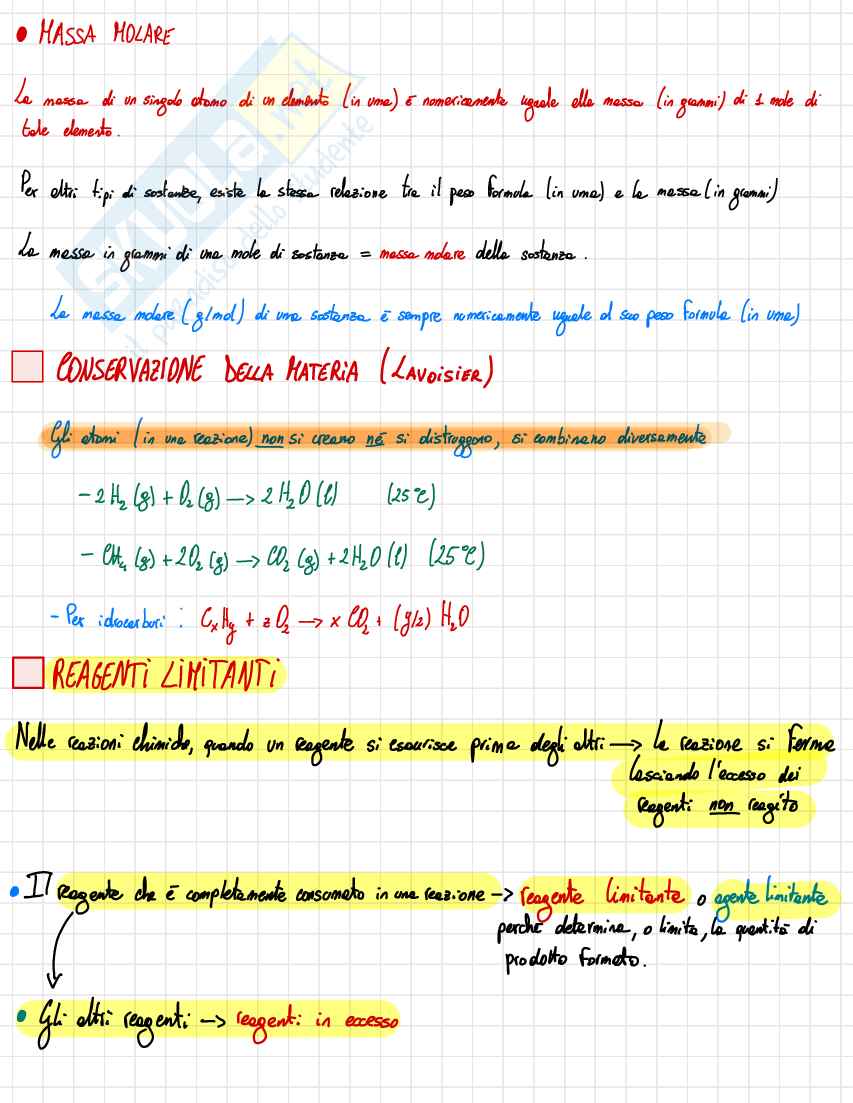 • MASSA MOLARE
La massa di un singolo atomo di un elemento (in uma) è numericamente uguale alla massa (in grammi) di 1 mole di
tale elemento.
Per altri tipi di sostanze, esiste la stessa relazione tra il peso formula (in uma) e la massa (in grammi)
La massa in grammi di una mole di sostanza = massa molare della sostanza.
La massa molare (g/mol) di una sostanza è sempre numericamente uguale al suo peso formula (in uma)
CONSERVAZIONE DELLA MATERIA (LAVOISIER)
Gli atomi (in una reazione) non si creano né si distruggono, si combinano diversamente
- 2H₂ (g) + O₂ (g) → 2H₂O (l) (25°C)
- CH₄ (g) + 2O₂ (g) → CO₂ (g) + 2H₂O (l) (25°C)
- Per idrocarburi : CₓHy + z O₂ → x CO₂ + (y/2) H₂O
REAGENTI LIMITANTI
Nelle reazioni chimiche, quando un reagente si esaurisce prima degli altri → la reazione si ferma
lasciando l'eccesso dei
reagenti non reagito
• Il reagente che è completamente consumato in una reazione → reagente limitante o agente limitante
perché determina, o limita, la quantità di
prodotto formato.
• Gli altri reagenti → reagenti in eccesso
SKUOLA.net
il paradiso dello studente